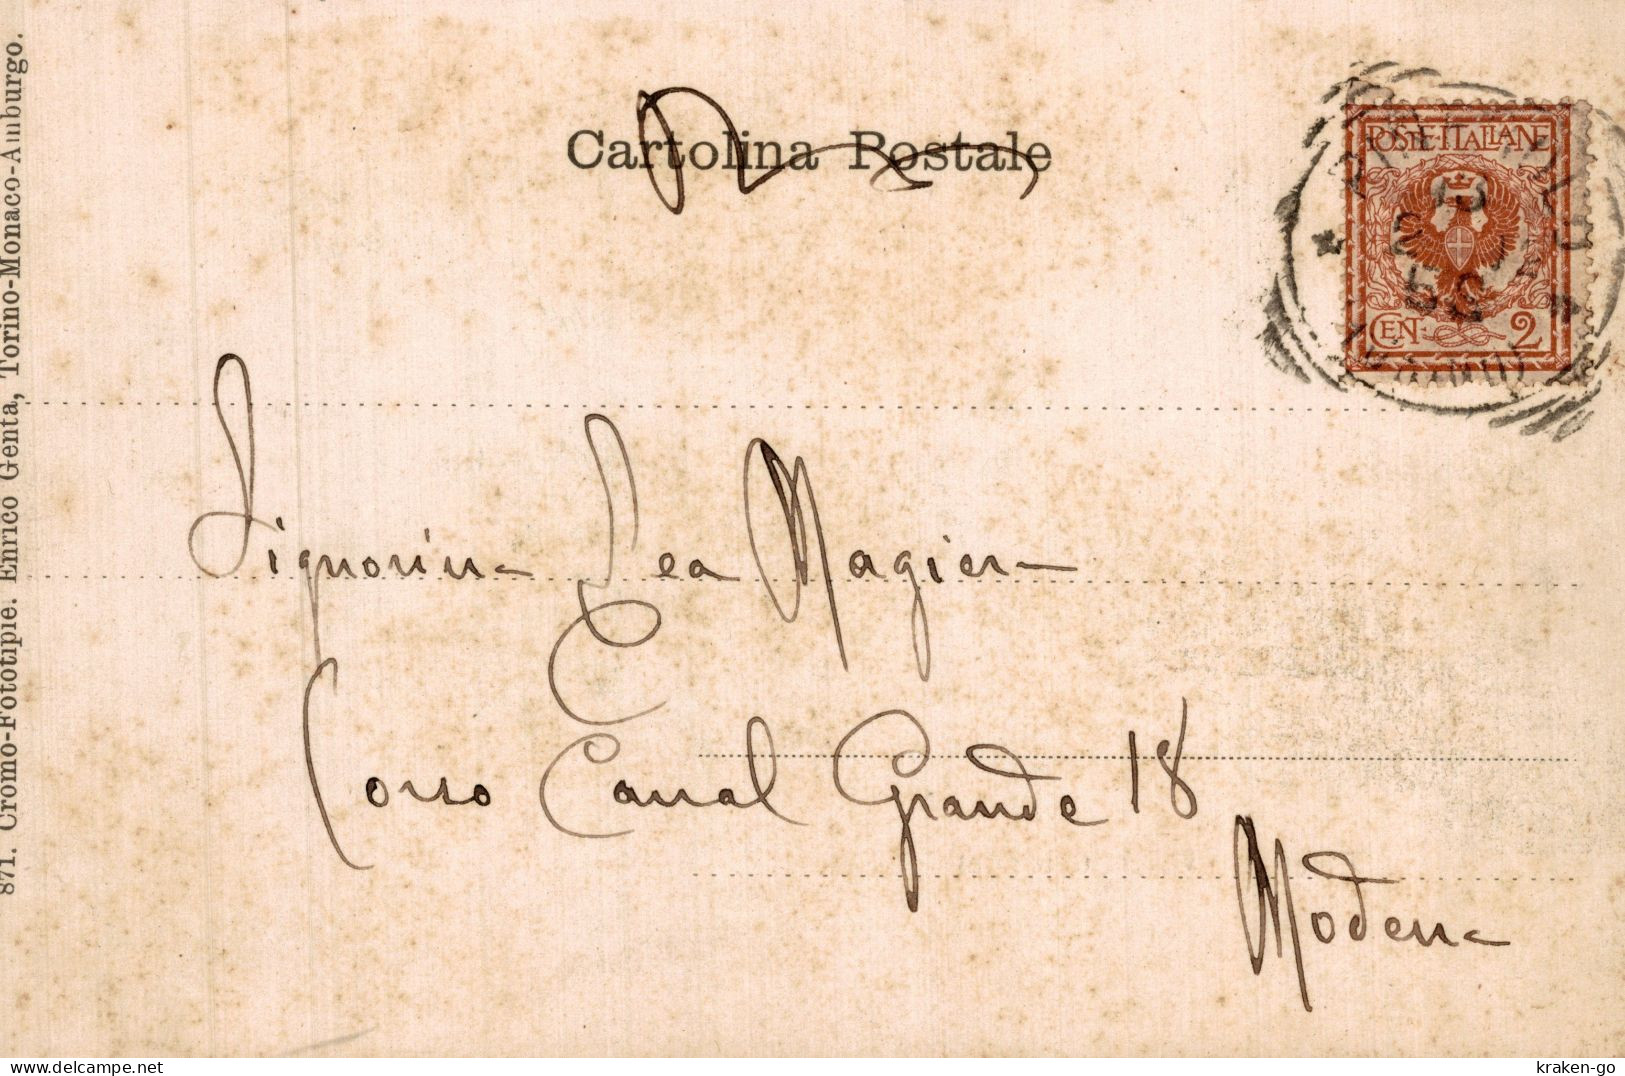 Cartolina Postale
POSTE·ITALIANE
CEN 2
871. Cromo-Fototipie. Enrico Genta, Torino-Monaco-Amburgo.
Signorina Lea Magiera
Corso Canal Grande 18
Modena
kraken-go
delcampe.net